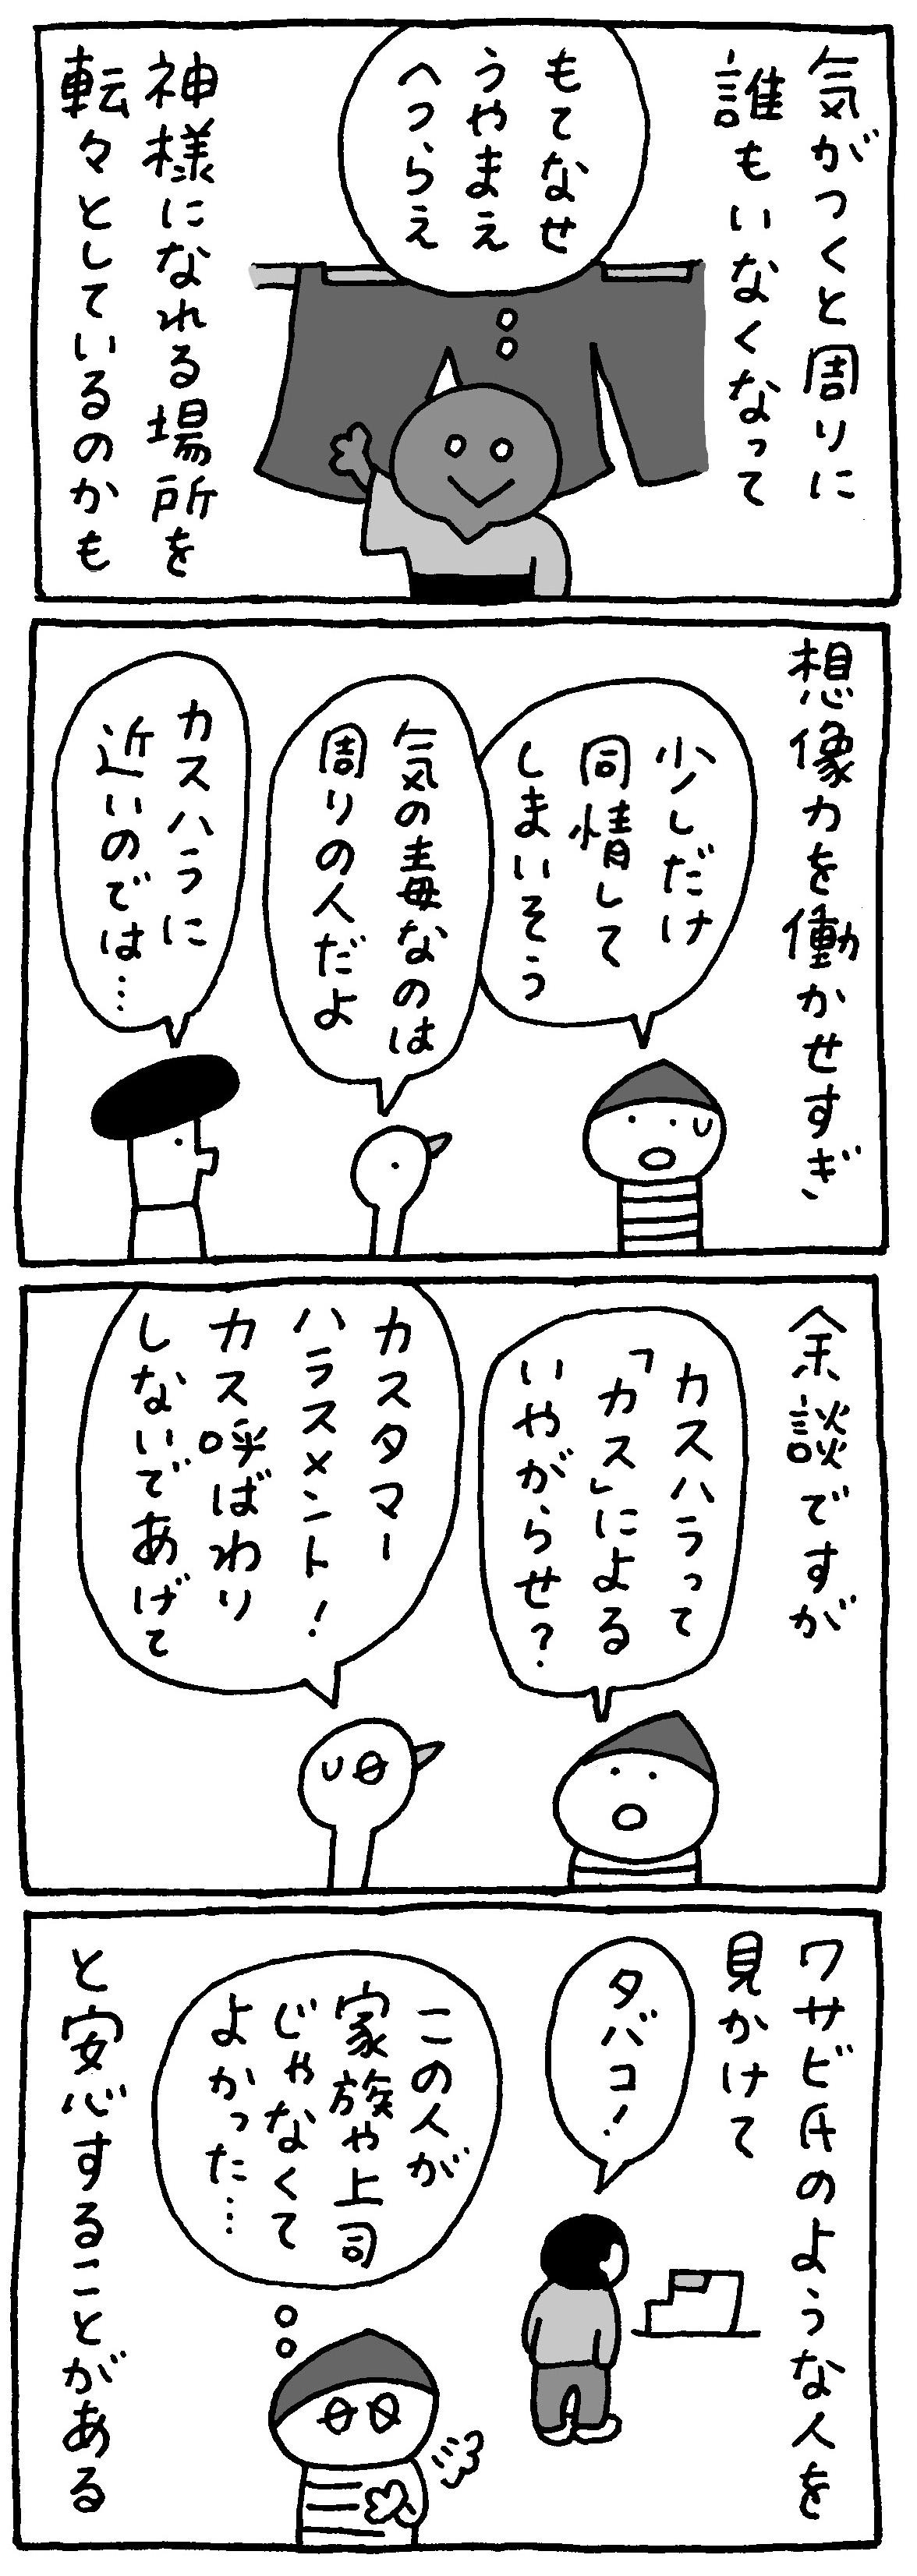 気がつくと周りに
誰もいなくなって
もてなせ
うやまえ
へつらえ
神様になれる場所を
転々としているのかも
想像力を働かせすぎ
少しだけ
同情して
しまいそう
気の毒なのは
周りの人だよ
カスハラに
近いのでは…
余談ですが
カスハラって
「カス」による
いやがらせ?
カスタマー
ハラスメント!
カス呼ばわり
しないであげて
ワサビ氏のような人を
見かけて
タバコ!
この人が
家族や上司
じゃなくて
よかった…
と安心することがある